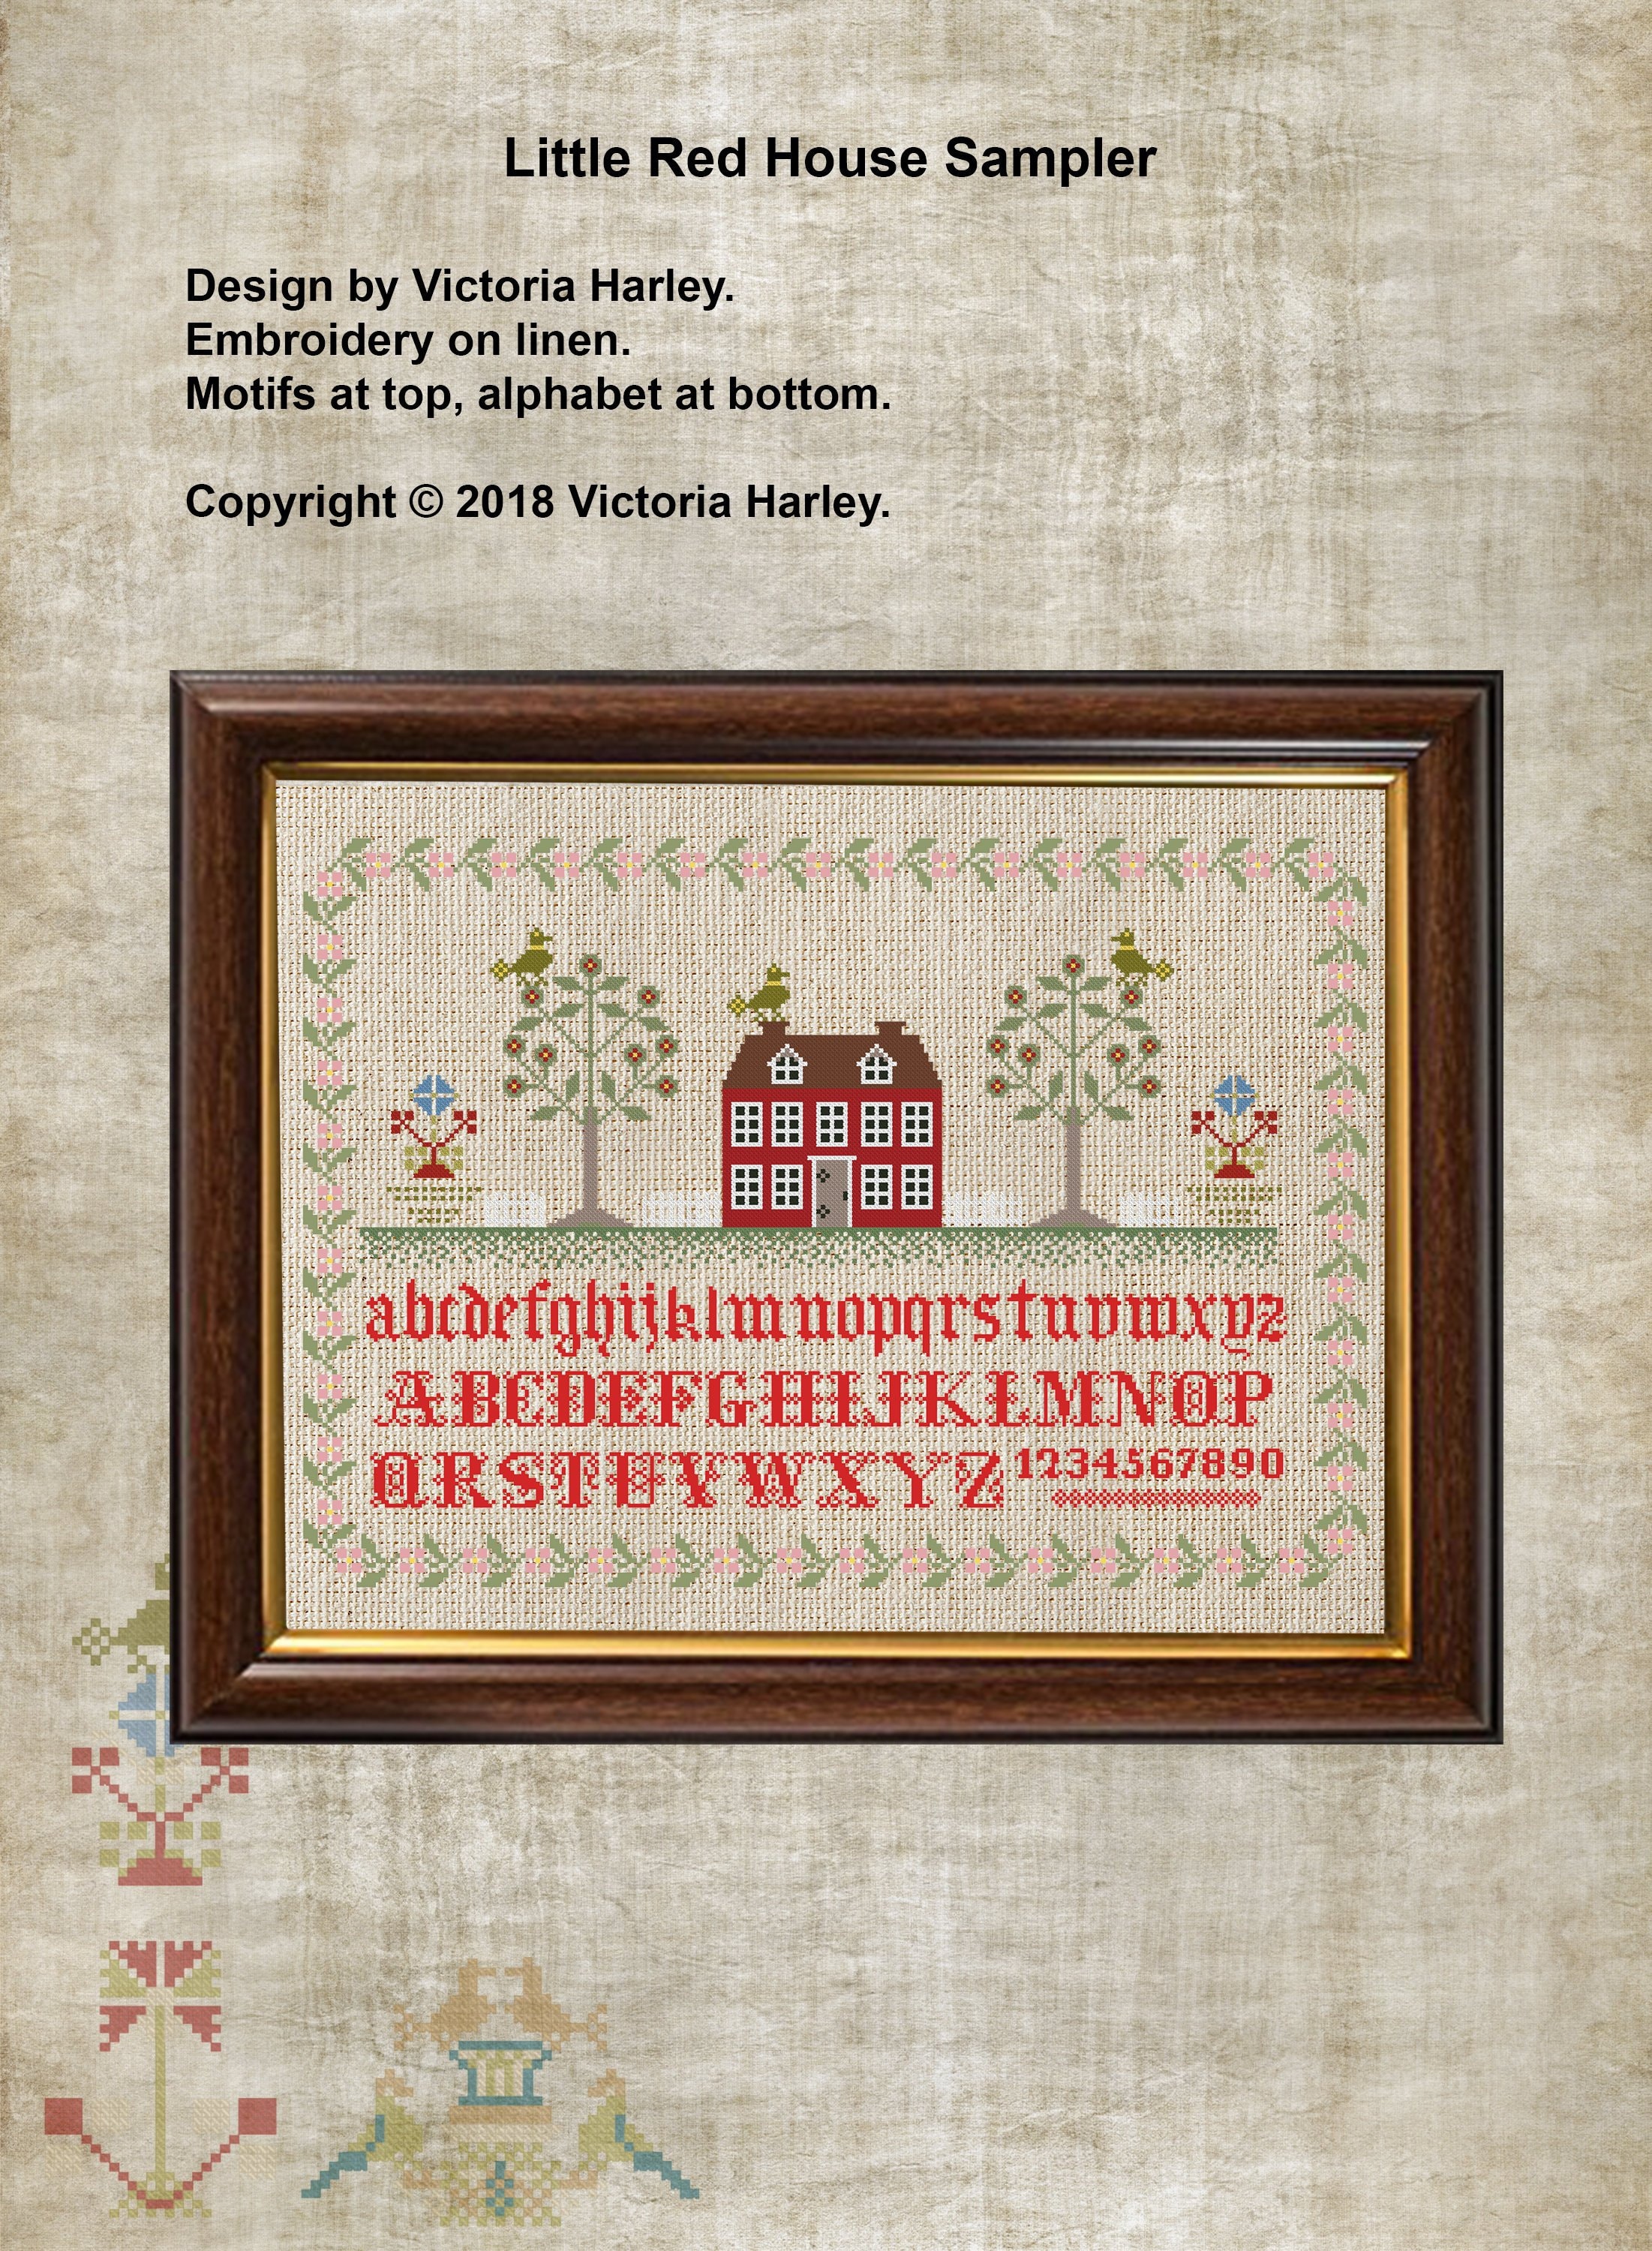 Little Red House Sampler
Design by Victoria Harley.
Embroidery on linen.
Motifs at top, alphabet at bottom.
Copyright © 2018 Victoria Harley.
abcdefghijklmnopqrstuvwxyz
ABCDEFGHIJKLMNOP
QRSTUVWXYZ 1234567890